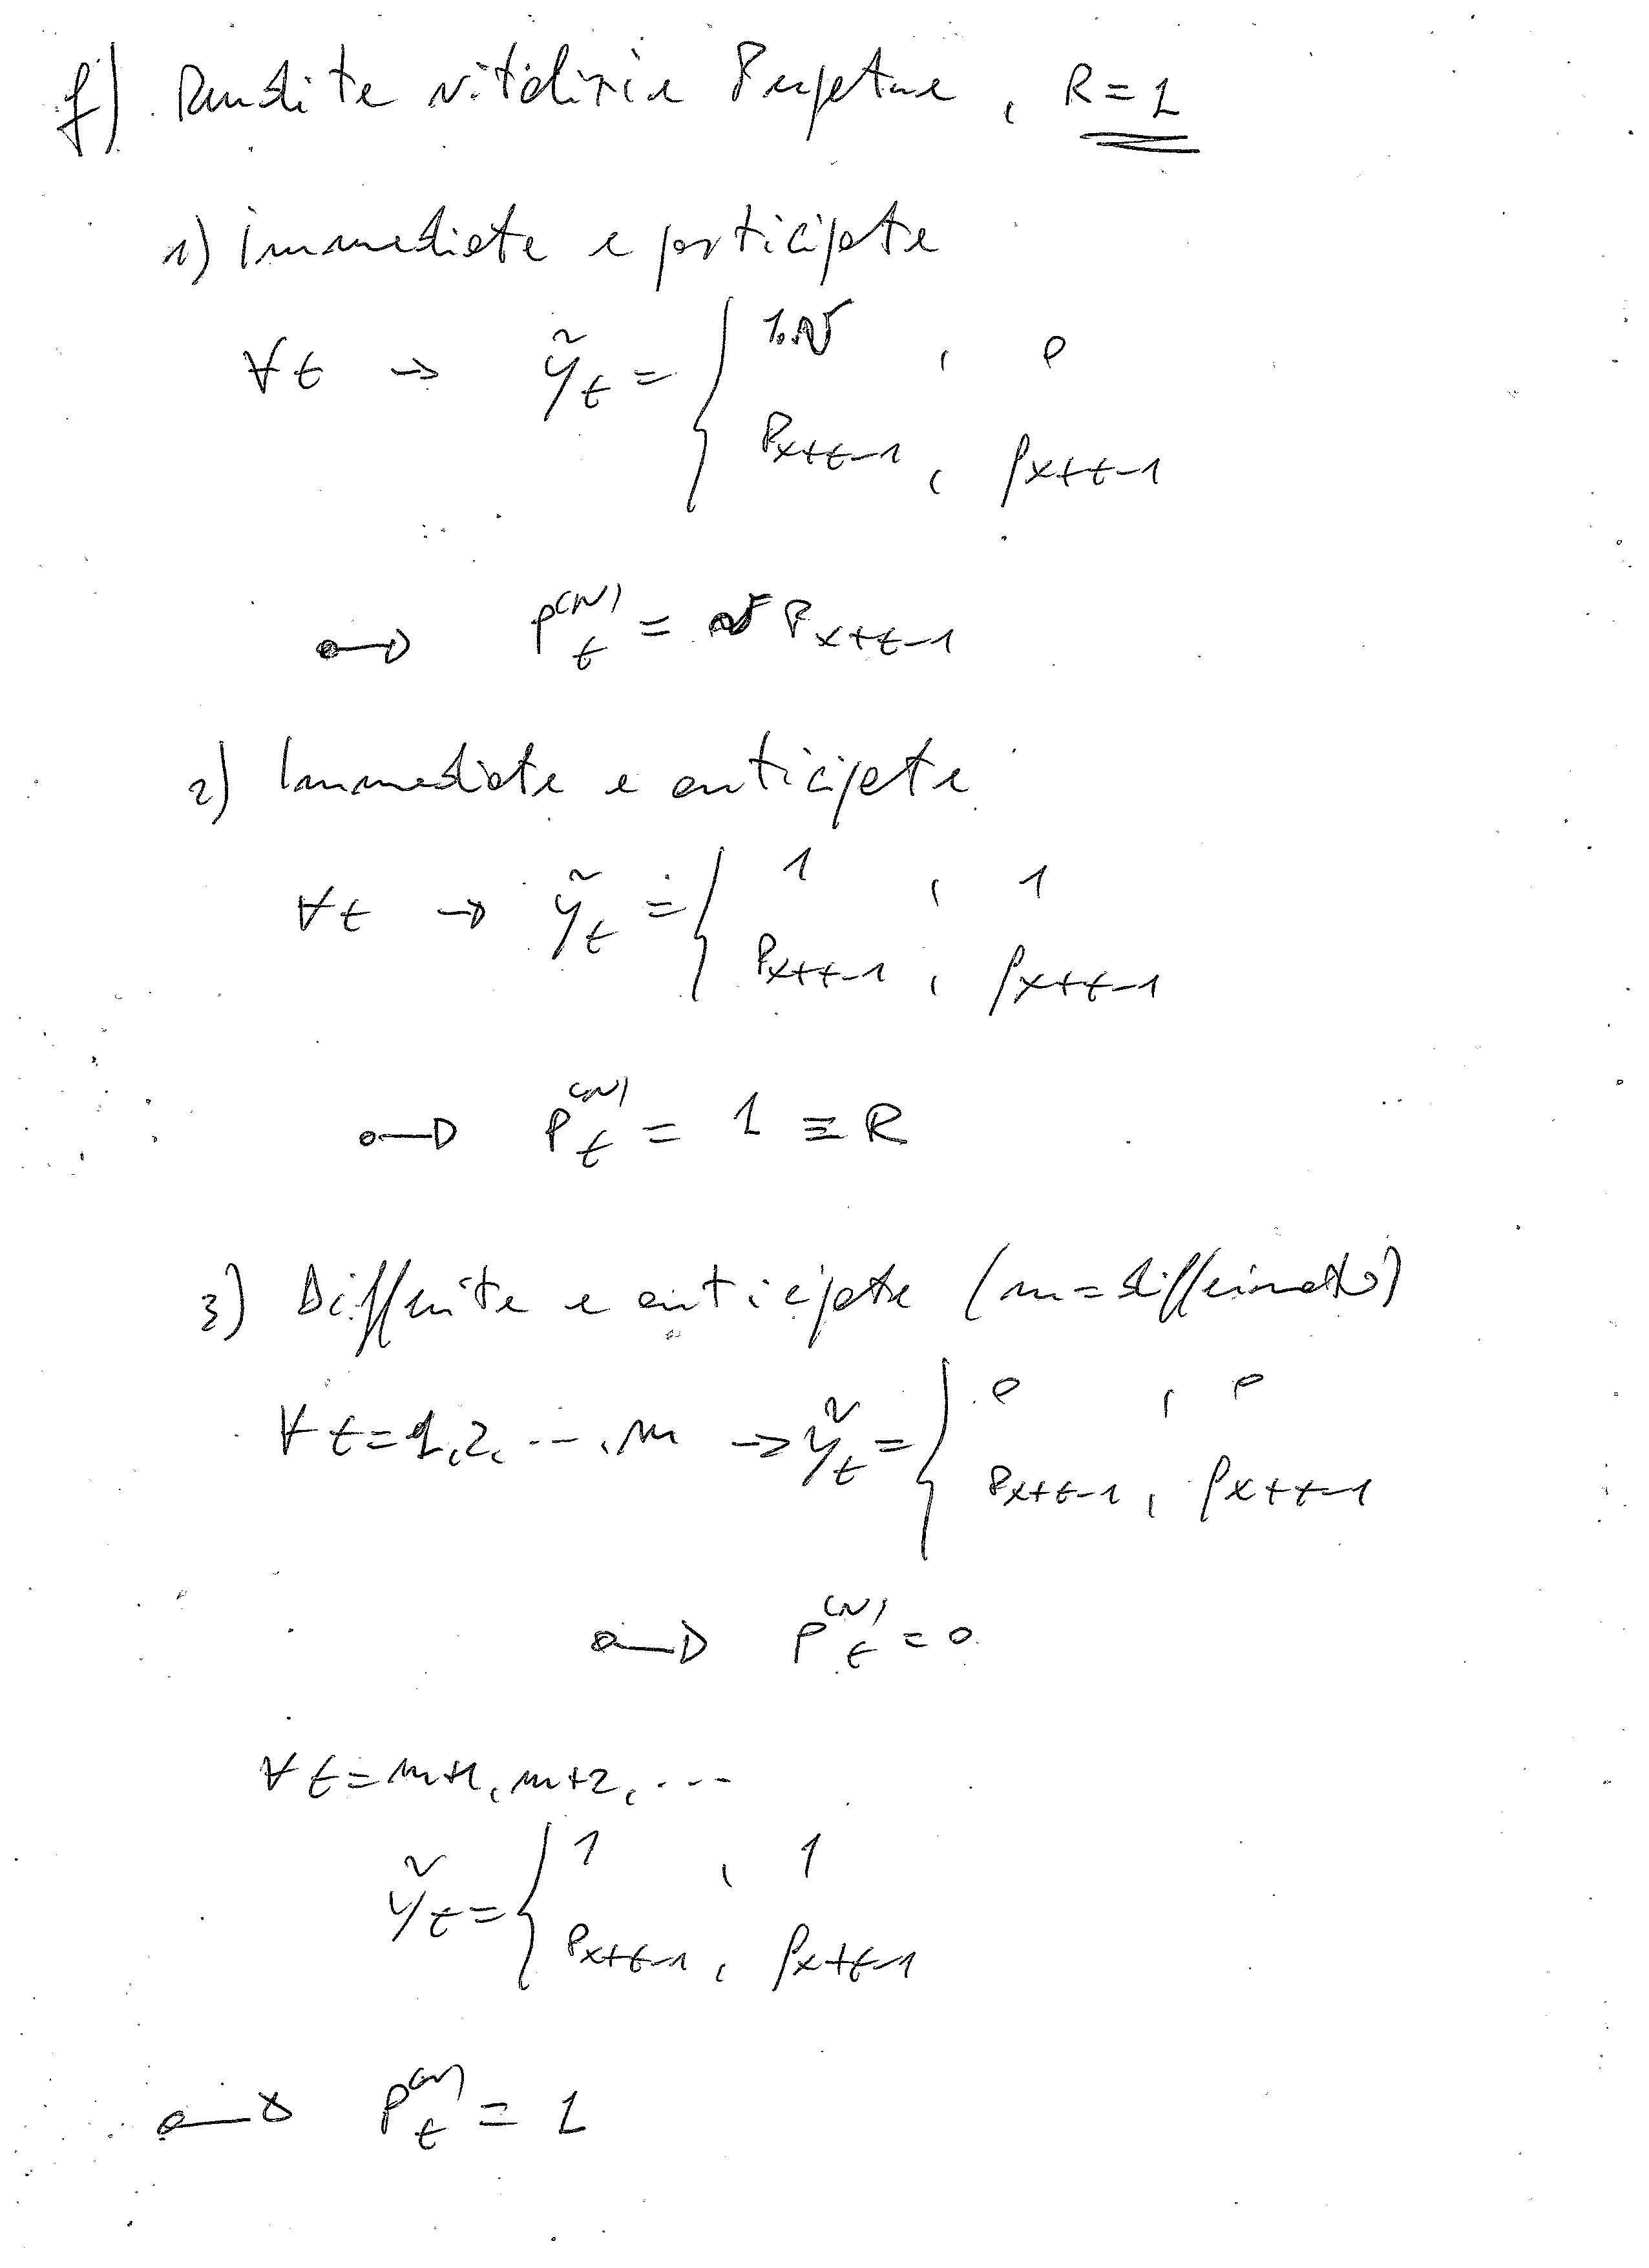 f) Rendite vitalizie Perpetue, R=1
1) Immediate e posticipate
∀t → ỹ_t = { 1·v , 0
p_{x+t-1} , p_{x+t-1}
o—▷ P_t^{(N)} = v p_{x+t-1}
2) Immediate e anticipate
∀t → ỹ_t = { 1 , 1
p_{x+t-1} , p_{x+t-1}
o—▷ P_t^{(N)} = 1 ≡ R
3) Differite e anticipate (m = differimento)
∀t=1,2,...,m → ỹ_t = { 0 , 0
p_{x+t-1} , p_{x+t-1}
o—▷ P_t^{(N)} = 0
∀t=m+1, m+2, ...
ỹ_t = { 1 , 1
p_{x+t-1} , p_{x+t-1}
o—▷ P_t^{(N)} = 1